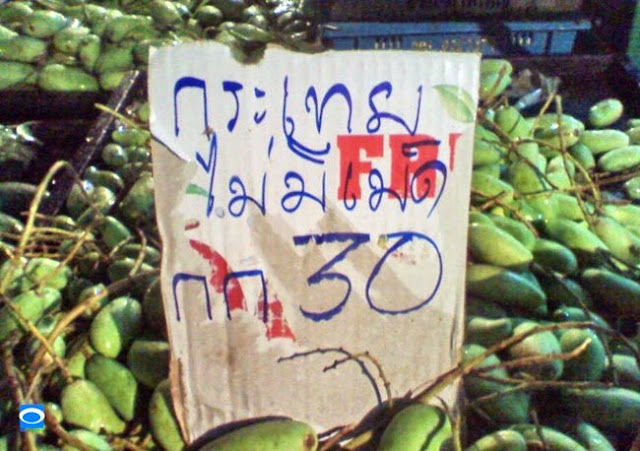 กระเทย
ไม่มีเม็ด
กก 30